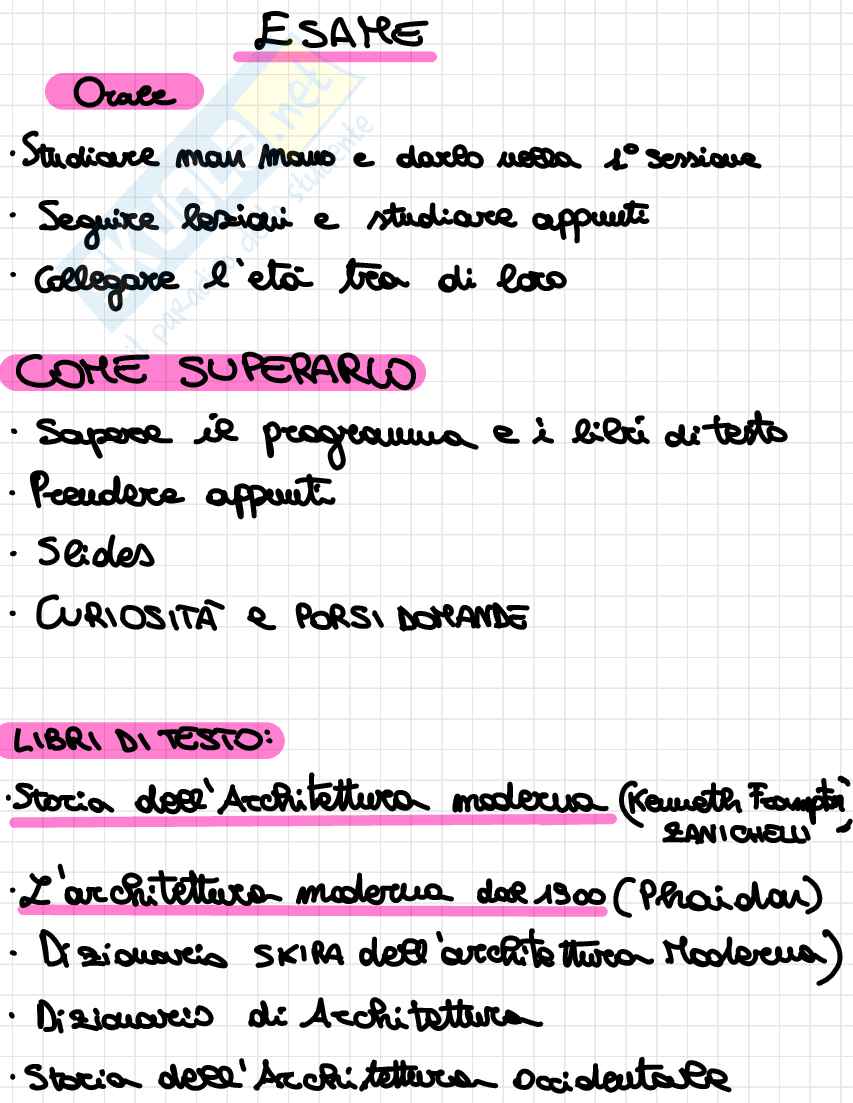 ESAME
Orale
· Studiare man mano e darlo nella 1° sessione
· Seguire lezioni e studiare appunti
· Collegare l'età tra di loro
COME SUPERARLO
· Sapere il programma e i libri di testo
· Prendere appunti
· Slides
· CURIOSITÀ e PORSI DOMANDE
LIBRI DI TESTO:
· Storia dell'Architettura moderna (Kenneth Frampton,
ZANICHELLI
· L'architettura moderna dal 1900 (Phaidon)
· Dizionario SKIRA dell'architettura Moderna)
· Dizionario di Architettura
· Storia dell'Architettura Occidentale
SKUOLA.net
il paradiso dello studente